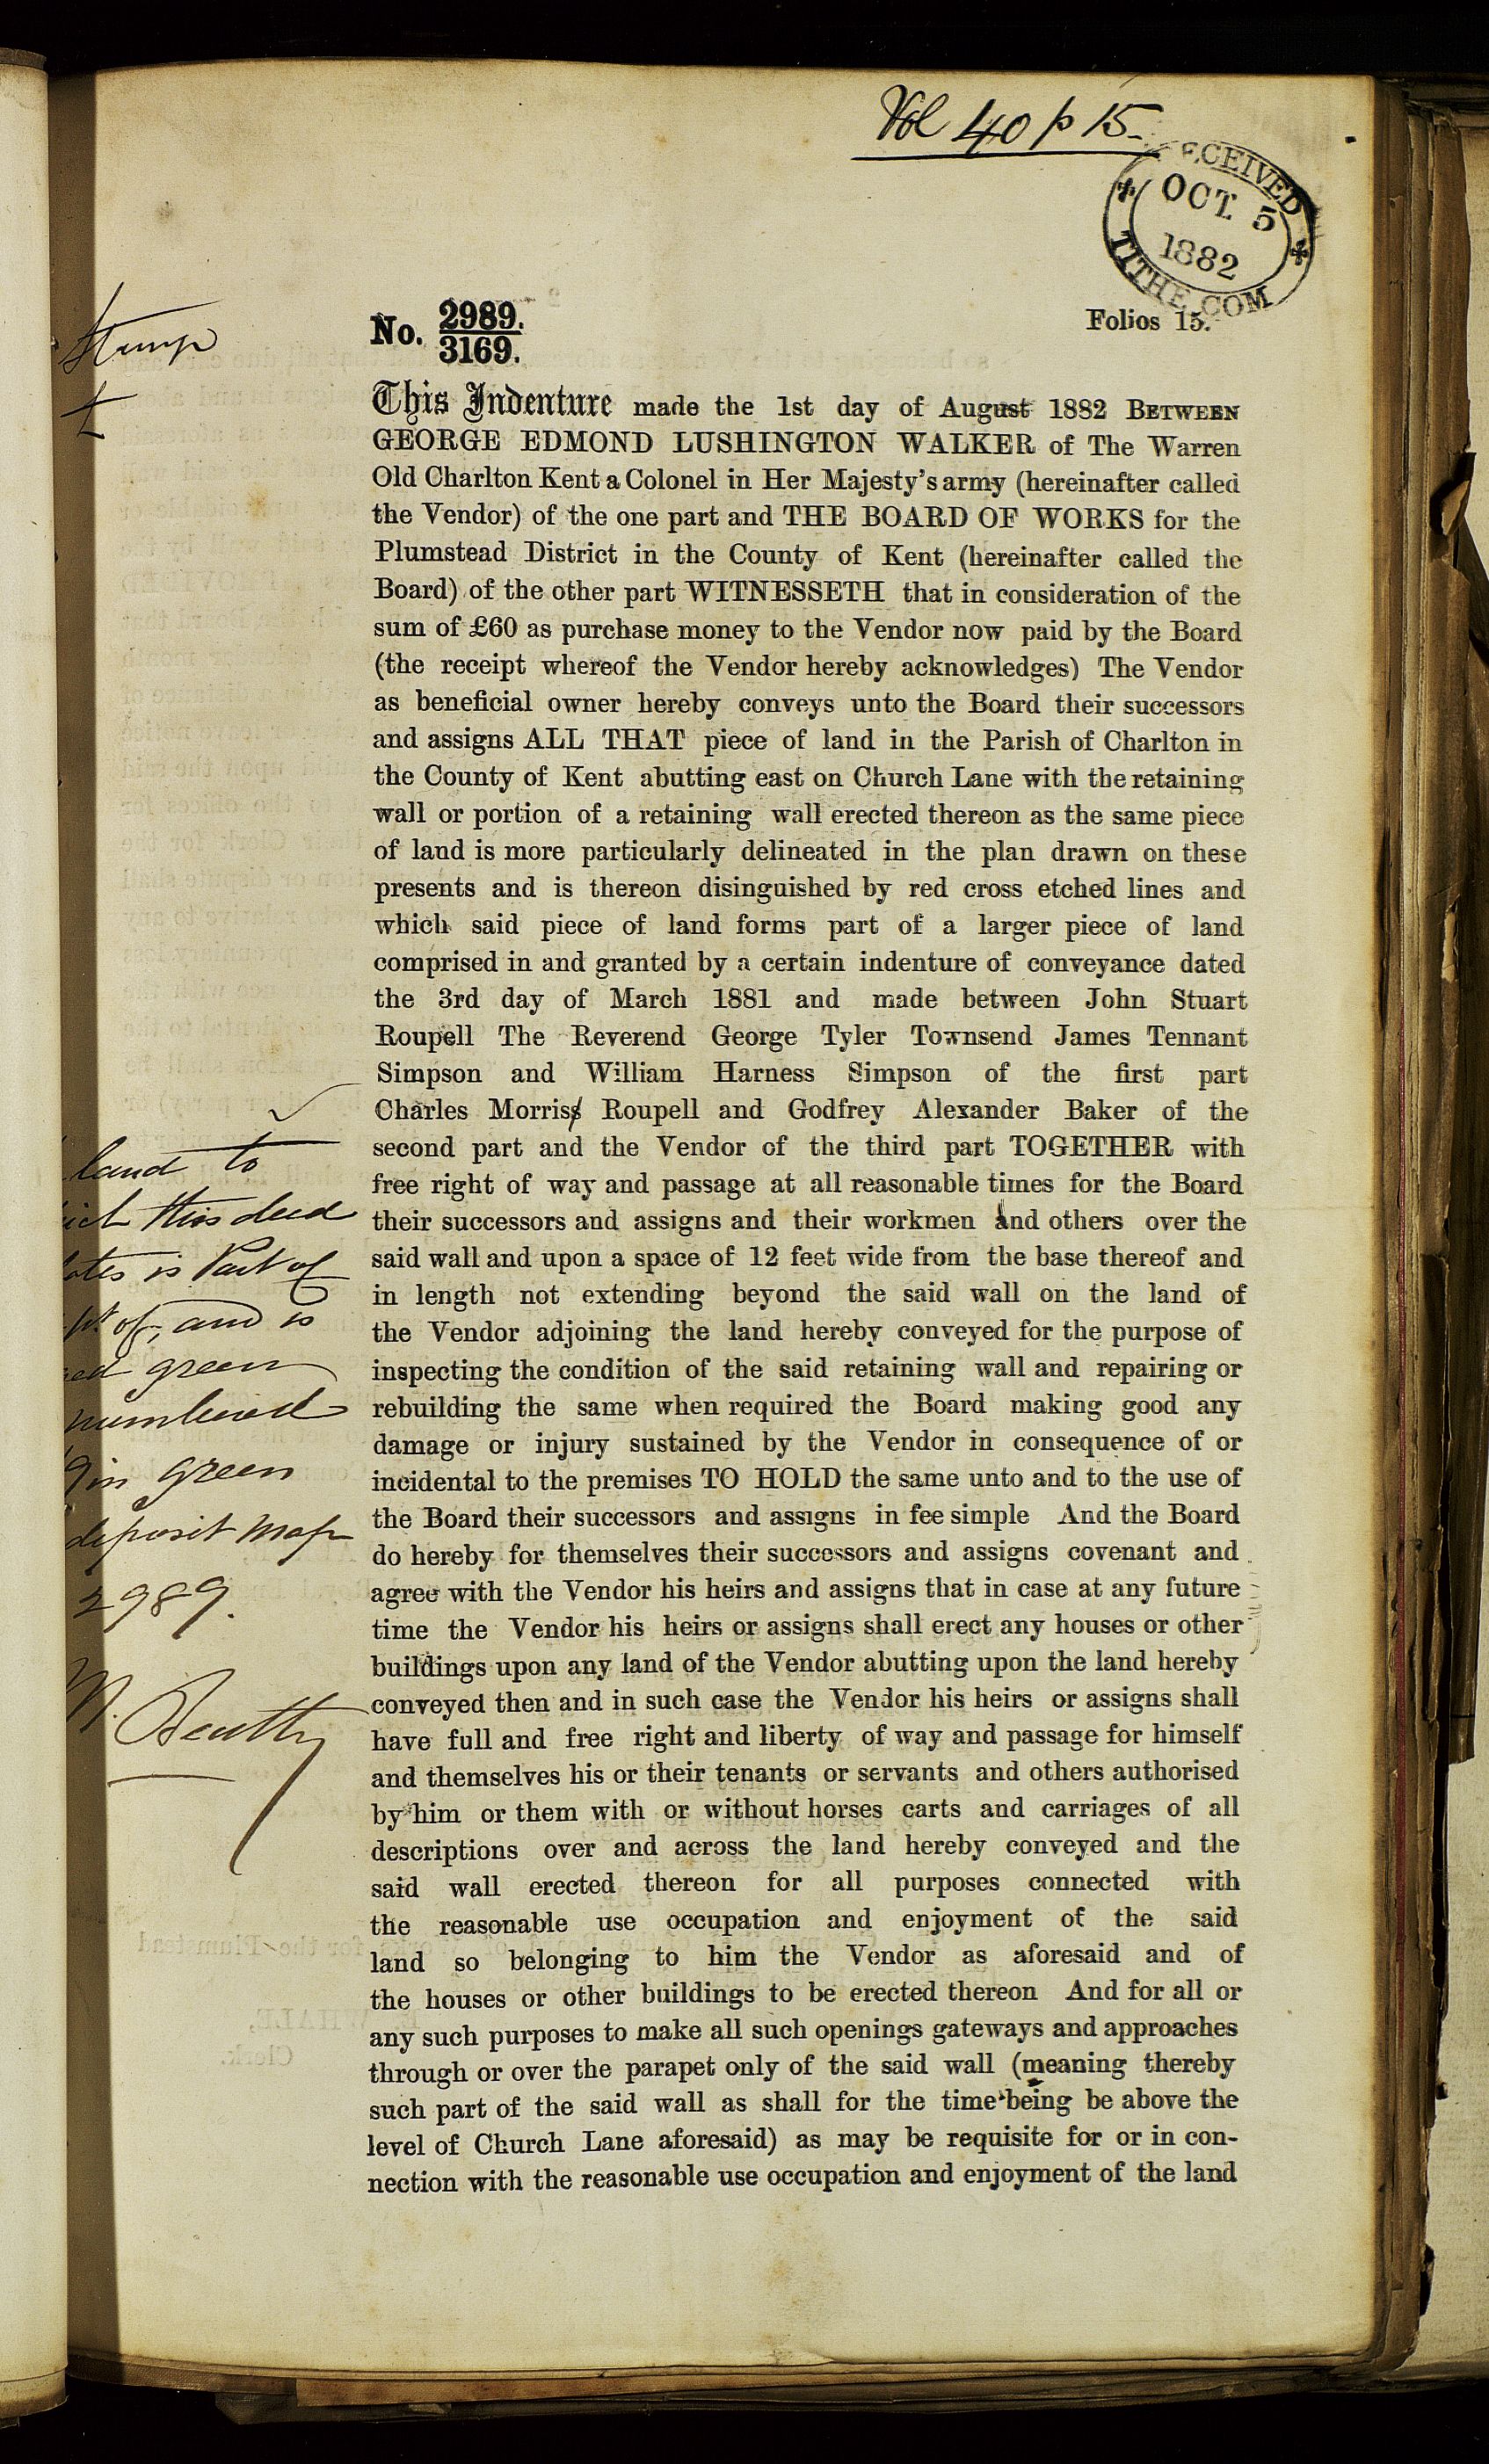 Vol 40 p 15
RECEIVED
OCT. 5
1882
TITHE COM
Stamp
No. 2989.
3169.
Folios 15.
This Indenture made the 1st day of August 1882 BETWEEN
GEORGE EDMOND LUSHINGTON WALKER of The Warren
Old Charlton Kent a Colonel in Her Majesty's army (hereinafter called
the Vendor) of the one part and THE BOARD OF WORKS for the
Plumstead District in the County of Kent (hereinafter called the
Board) of the other part WITNESSETH that in consideration of the
sum of £60 as purchase money to the Vendor now paid by the Board
(the receipt whereof the Vendor hereby acknowledges) The Vendor
as beneficial owner hereby conveys unto the Board their successors
and assigns ALL THAT piece of land in the Parish of Charlton in
the County of Kent abutting east on Church Lane with the retaining
wall or portion of a retaining wall erected thereon as the same piece
of land is more particularly delineated in the plan drawn on these
presents and is thereon disinguished by red cross etched lines and
which said piece of land forms part of a larger piece of land
comprised in and granted by a certain indenture of conveyance dated
the 3rd day of March 1881 and made between John Stuart
Roupell The Reverend George Tyler Townsend James Tennant
Simpson and William Harness Simpson of the first part
Charles Morriss Roupell and Godfrey Alexander Baker of the
second part and the Vendor of the third part TOGETHER with
free right of way and passage at all reasonable times for the Board
their successors and assigns and their workmen and others over the
said wall and upon a space of 12 feet wide from the base thereof and
in length not extending beyond the said wall on the land of
the Vendor adjoining the land hereby conveyed for the purpose of
inspecting the condition of the said retaining wall and repairing or
rebuilding the same when required the Board making good any
damage or injury sustained by the Vendor in consequence of or
incidental to the premises TO HOLD the same unto and to the use of
the Board their successors and assigns in fee simple And the Board
do hereby for themselves their successors and assigns covenant and
agree with the Vendor his heirs and assigns that in case at any future
time the Vendor his heirs or assigns shall erect any houses or other
buildings upon any land of the Vendor abutting upon the land hereby
conveyed then and in such case the Vendor his heirs or assigns shall
have full and free right and liberty of way and passage for himself
and themselves his or their tenants or servants and others authorised
by him or them with or without horses carts and carriages of all
descriptions over and across the land hereby conveyed and the
said wall erected thereon for all purposes connected with
the reasonable use occupation and enjoyment of the said
land so belonging to him the Vendor as aforesaid and of
the houses or other buildings to be erected thereon And for all or
any such purposes to make all such openings gateways and approaches
through or over the parapet only of the said wall (meaning thereby
such part of the said wall as shall for the time being be above the
level of Church Lane aforesaid) as may be requisite for or in con-
nection with the reasonable use occupation and enjoyment of the land
land to
this deed
is Part of
of, and is
green
numbered
in green
deposit map
2989.